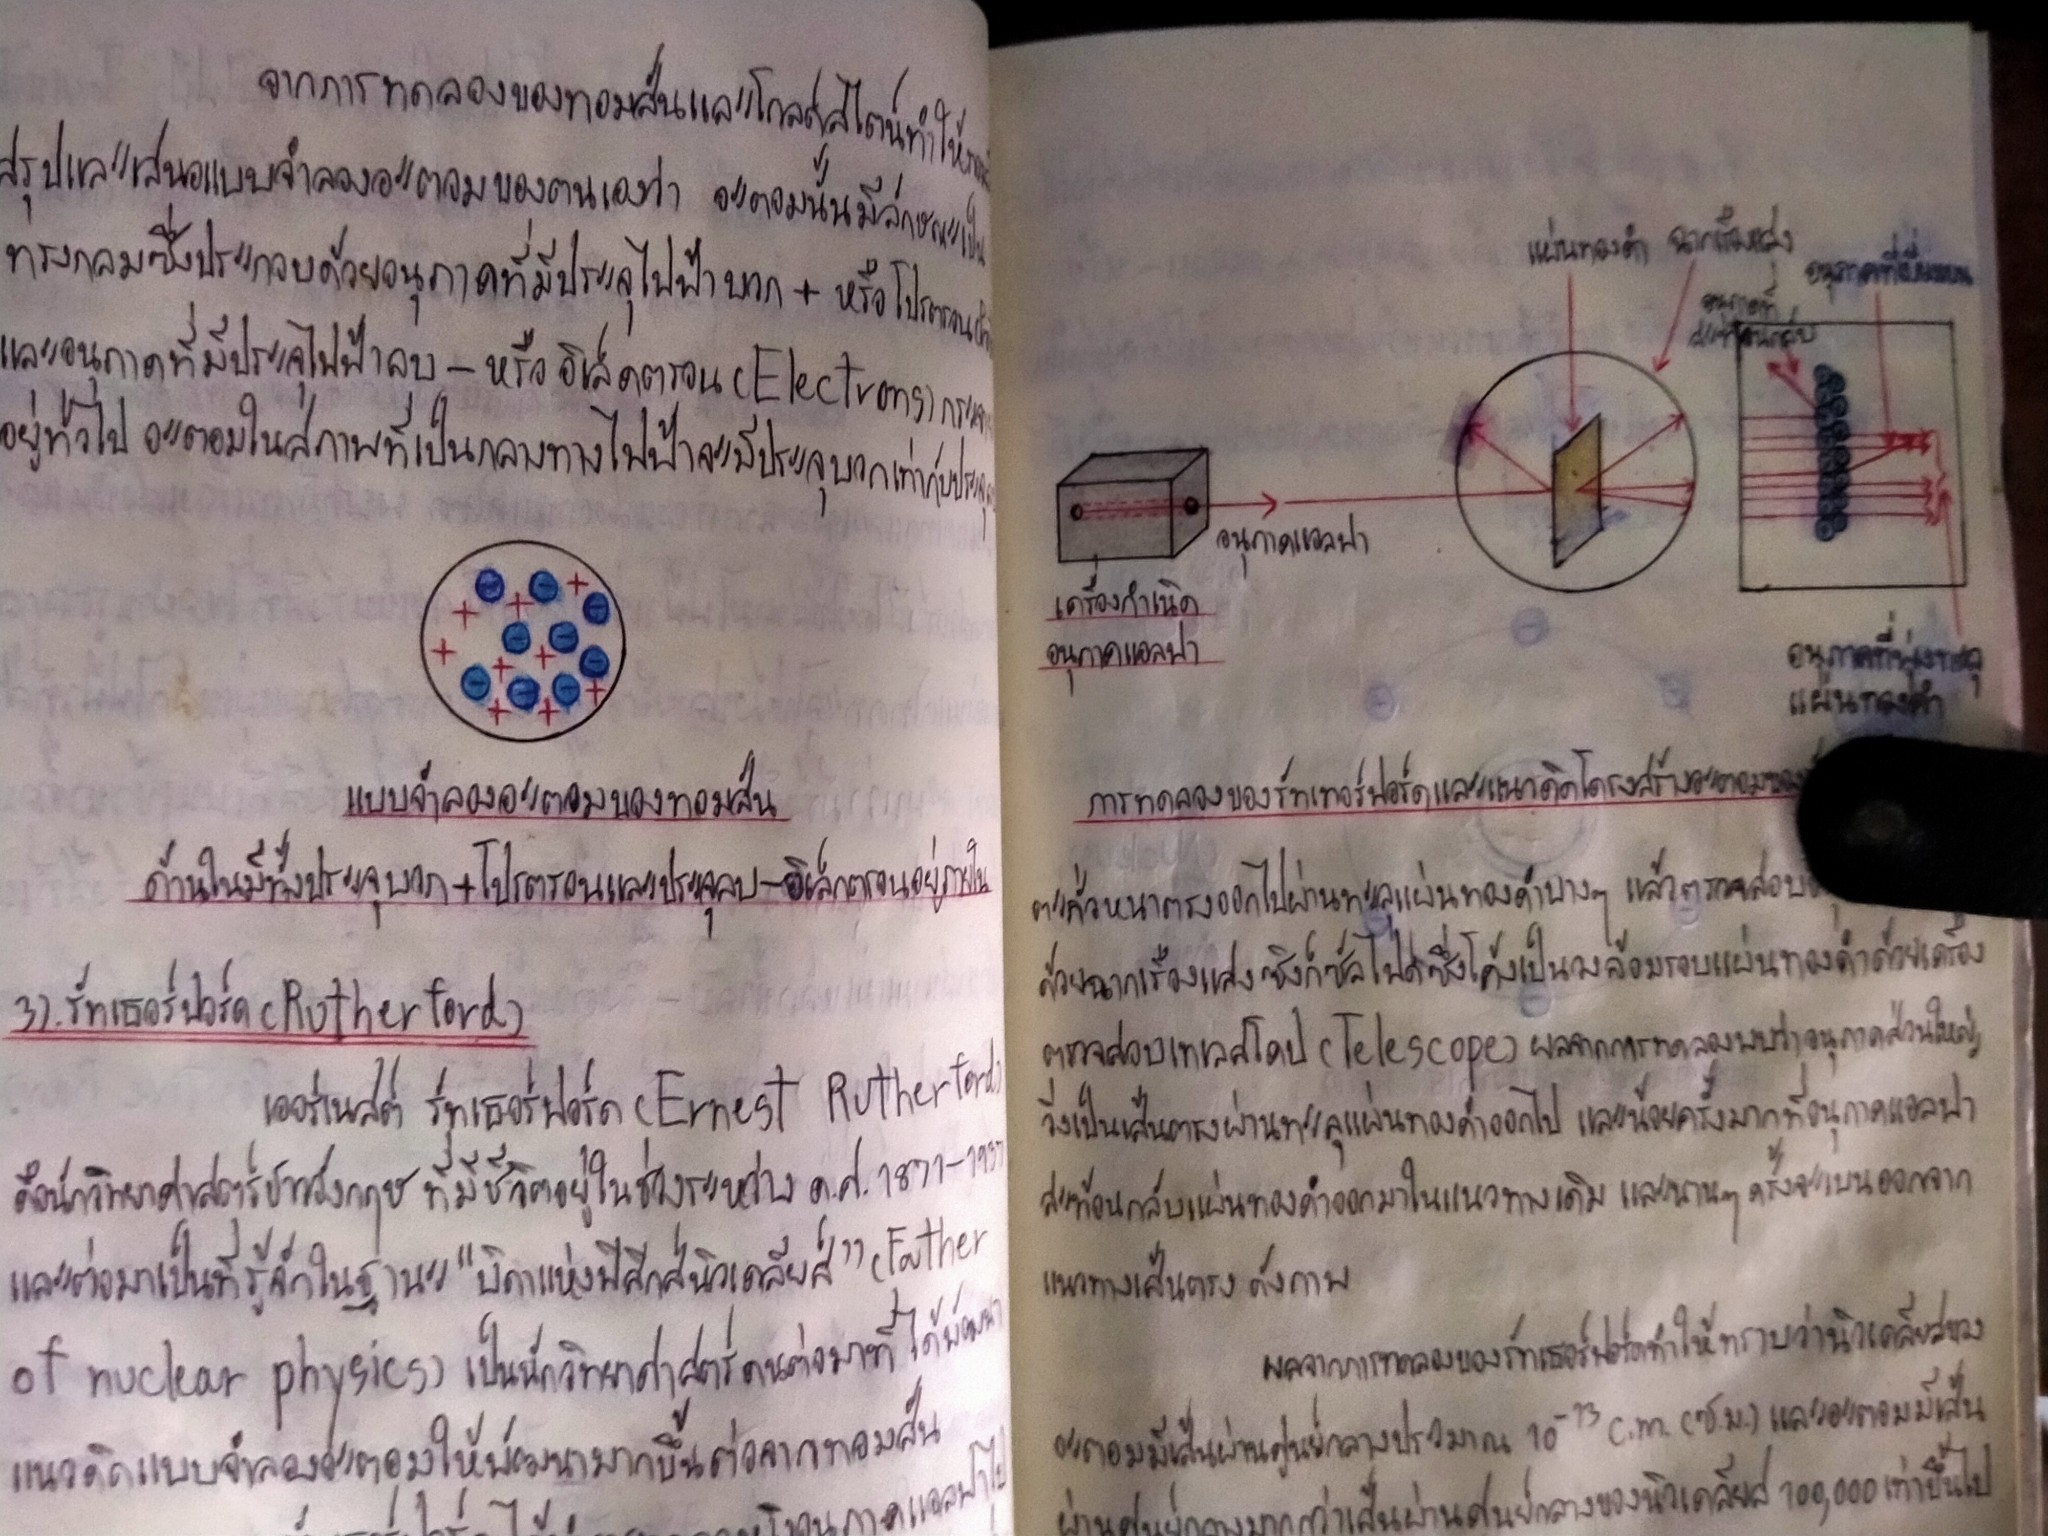 จากการทดลองของทอมสันและโกลด์สไตน์ทำให้
สรุปและเสนอแบบจำลองอะตอมของตนเองว่า อะตอมนั้นมีลักษณะเป็น
ทรงกลมซึ่งประกอบด้วยอนุภาคที่มีประจุไฟฟ้าบวก + หรือโปรตอน
และอนุภาคที่มีประจุไฟฟ้าลบ - หรืออิเล็คตรอน (Electrons) กระจาย
อยู่ทั่วไป อะตอมในสภาพที่เป็นกลางทางไฟฟ้าจะมีประจุบวกเท่ากับประจุ
แบบจำลองอะตอมของทอมสัน
ด้านในมีทั้งประจุบวก + โปรตรอนและประจุลบ - อิเล็กตรอนอยู่ภายใน
3). รัทเธอร์ฟอร์ด (Rutherford)
เออร์เนสต์ รัทเธอร์ฟอร์ด (Ernest Rutherford)
คือนักวิทยาศาสตร์ชาวอังกฤษ ที่มีชีวิตอยู่ในช่วงระหว่าง ค.ศ. 1871-1937
และต่อมาเป็นที่รู้จักในฐานะ "บิดาแห่งฟิสิกส์นิวเคลียส์" (Father
of nuclear physics) เป็นนักวิทยาศาสตร์คนต่อมาที่ได้พัฒนา
แนวคิดแบบจำลองอะตอมให้พัฒนามากขึ้นต่อจากทอมสัน
อนุภาคแอลฟาไป
แผ่นทองคำ
ฉากเรืองแสง
อนุภาคที่เบี่ยงเบน
อนุภาคที่
สะท้อนกลับ
อนุภาคแอลฟา
เครื่องกำเนิด
อนุภาคแอลฟา
อนุภาคที่พุ่งทะลุ
แผ่นทองคำ
การทดลองของรัทเทอร์ฟอร์ดและแนวคิดโครงสร้างอะตอมของ
ตะกั่วหนาตรงออกไปผ่านทะลุแผ่นทองคำบางๆ แล้วตรวจสอบ
ด้วยฉากเรืองแสงซิงก์ซัลไฟด์ซึ่งโค้งเป็นวงล้อมรอบแผ่นทองคำด้วยเครื่อง
ตรวจสอบเทเลสโคป (Telescope) ผลจากการทดลองพบว่าอนุภาคส่วนใหญ่
วิ่งเป็นเส้นตรงผ่านทะลุแผ่นทองคำออกไป และน้อยครั้งมากที่อนุภาคแอลฟา
สะท้อนกลับแผ่นทองคำออกมาในแนวทางเดิม และนานๆ ครั้งจะเบนออกจาก
แนวทางเส้นตรง ดังภาพ
ผลจากการทดลองของรัทเธอร์ฟอร์ดทำให้ทราบว่านิวเคลียสของ
อะตอมมีเส้นผ่านศูนย์กลางประมาณ 10⁻¹³ c.m. (ซ.ม.) และอะตอมมีเส้น
ผ่านศูนย์กลางมากกว่าเส้นผ่านศูนย์กลางของนิวเคลียส 100,000 เท่าขึ้นไป